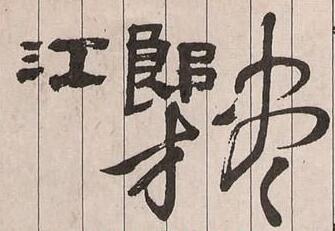 江郎才尽